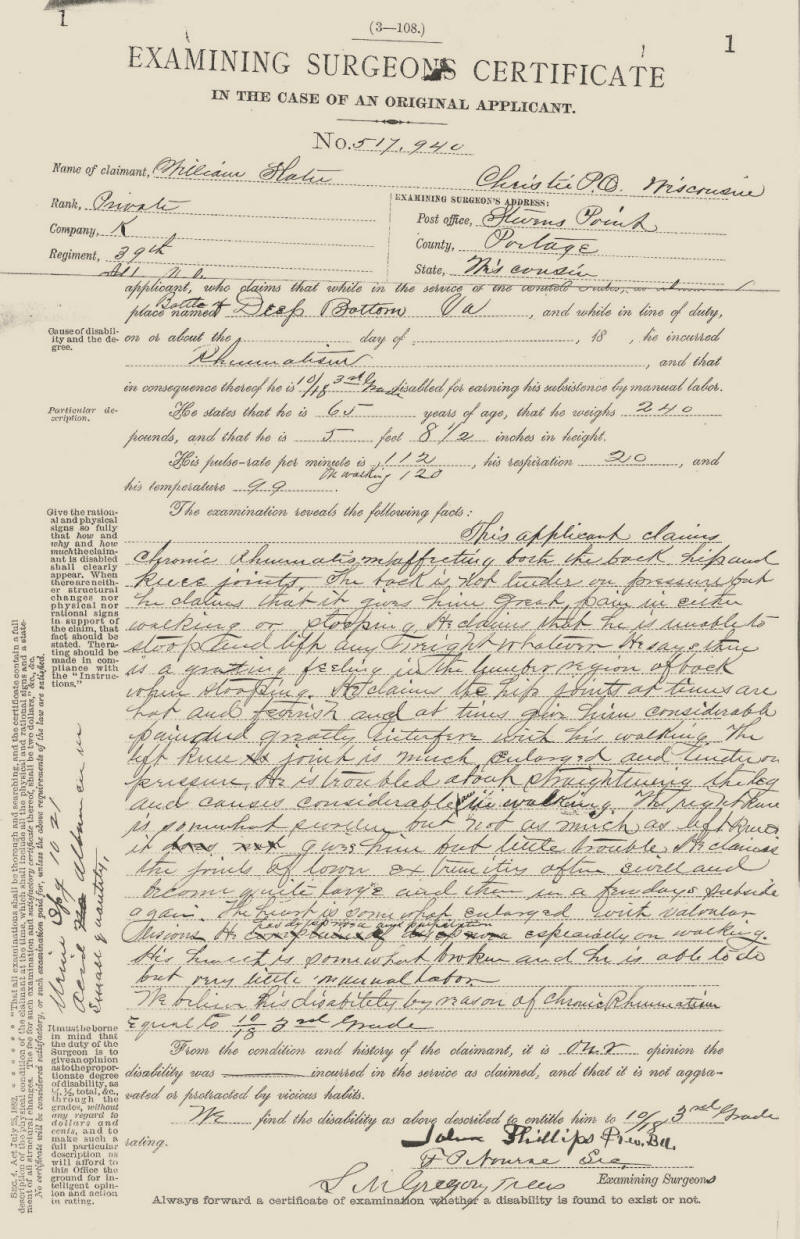 1
(3—108.)
1
EXAMINING SURGEON'S CERTIFICATE
IN THE CASE OF AN ORIGINAL APPLICANT.
No. 517,940
Name of claimant, William Slater Christie P.O. Wisconsine
Rank, Private
Company, K
Regiment, 39th
Ill
EXAMINING SURGEON'S ADDRESS:
Post office, Stevens Point
County, Portage
State, Wisconsin
applicant, who claims that while in the service of the United States, at
place named Battle of Deep Bottom Va, and while in line of duty,
Cause of disabil-
ity and the de-
gree.
on or about the day of , 18 , he incurred
Rheumatism, and that
in consequence thereof he is 10/18 3rd Grade disabled for earning his subsistence by manual labor.
Particular de-
scription.
He states that he is 65 years of age, that he weighs 240
pounds, and that he is 5 feet 8 1/2 inches in height.
His pulse-rate per minute is 112, his respiration 20, and
On walking 120
his temperature 99.
The examination reveals the following facts:
Give the ration-
al and physical
signs so fully
that how and
why and how
much the claim-
ant is disabled
shall clearly
appear. When
there are neith-
er structural
changes nor
physical nor
rational signs
in support of
the claim, that
fact should be
stated. The ra-
ting should be
made in com-
pliance with
the "Instruc-
tions."
This applicant claims
Chronic Rheumatism affecting both the back hip and
knee joints. The back is not tender on pressure but
he claims that it gives him great pain in either
walking or stooping. He claims that he is unable to
stoop and lift any weight whatever. He says there
is a grating feeling in the lumbar region of back
when stooping. He claims the hip joints at times are
hot and feverish and at times give him considerable
pain and greatly interfere with his walking. The
left knee joint is much enlarged and tender on
pressure. He is troubled about straightening the leg
and causes considerable in walking. The right knee
is somewhat swollen but not as much as left knee
it does not give him but little trouble. He claims
the joints of lower extremities often swell and
become quite large and then in a few days subside
again. The heart is somewhat enlarged with valvular
lesions. He has dyspnoea and palpitation especially on walking.
His health is somewhat broken and he is able to do
but very little manual labor
We believe his disability by reason of Chronic Rheumatism
Equal to 10/18 3rd Grade
Urine Spg 1021
Acid albumen in
small quantity,
SEC. 4, Act July 25, 1882. * * * * * "That all examinations shall be thorough and searching, and the certificate contain a full
description of the physical condition of the claimant at the time, which shall include all the physical and rational signs and a state-
ment of all structural changes. The fee for such examination and satisfactory certificate thereof, shall be two dollars," &c., &c.
No certificate will be considered satisfactory, or such examination paid for, unless the above requirements of the law are satisfied.
It must be borne
in mind that
the duty of the
Surgeon is to
give an opinion
as to the propor-
tionate degree
of disability, as
¼, ½, total, &c.,
through the
grades, without
any regard to
dollars and
cents, and to
make such a
full particular
description as
will afford to
this Office the
ground for in-
telligent opin-
ion and action
in rating.
From the condition and history of the claimant, it is our opinion the
disability was incurred in the service as claimed, and that it is not aggra-
vated or protracted by vicious habits.
We find the disability as above described to entitle him to 10/18 3rd Grade
rating.
John Phillips Pres. Bd.
F P Nourse Sec,
L M Gregory Treas
Examining Surgeons
Always forward a certificate of examination whether a disability is found to exist or not.